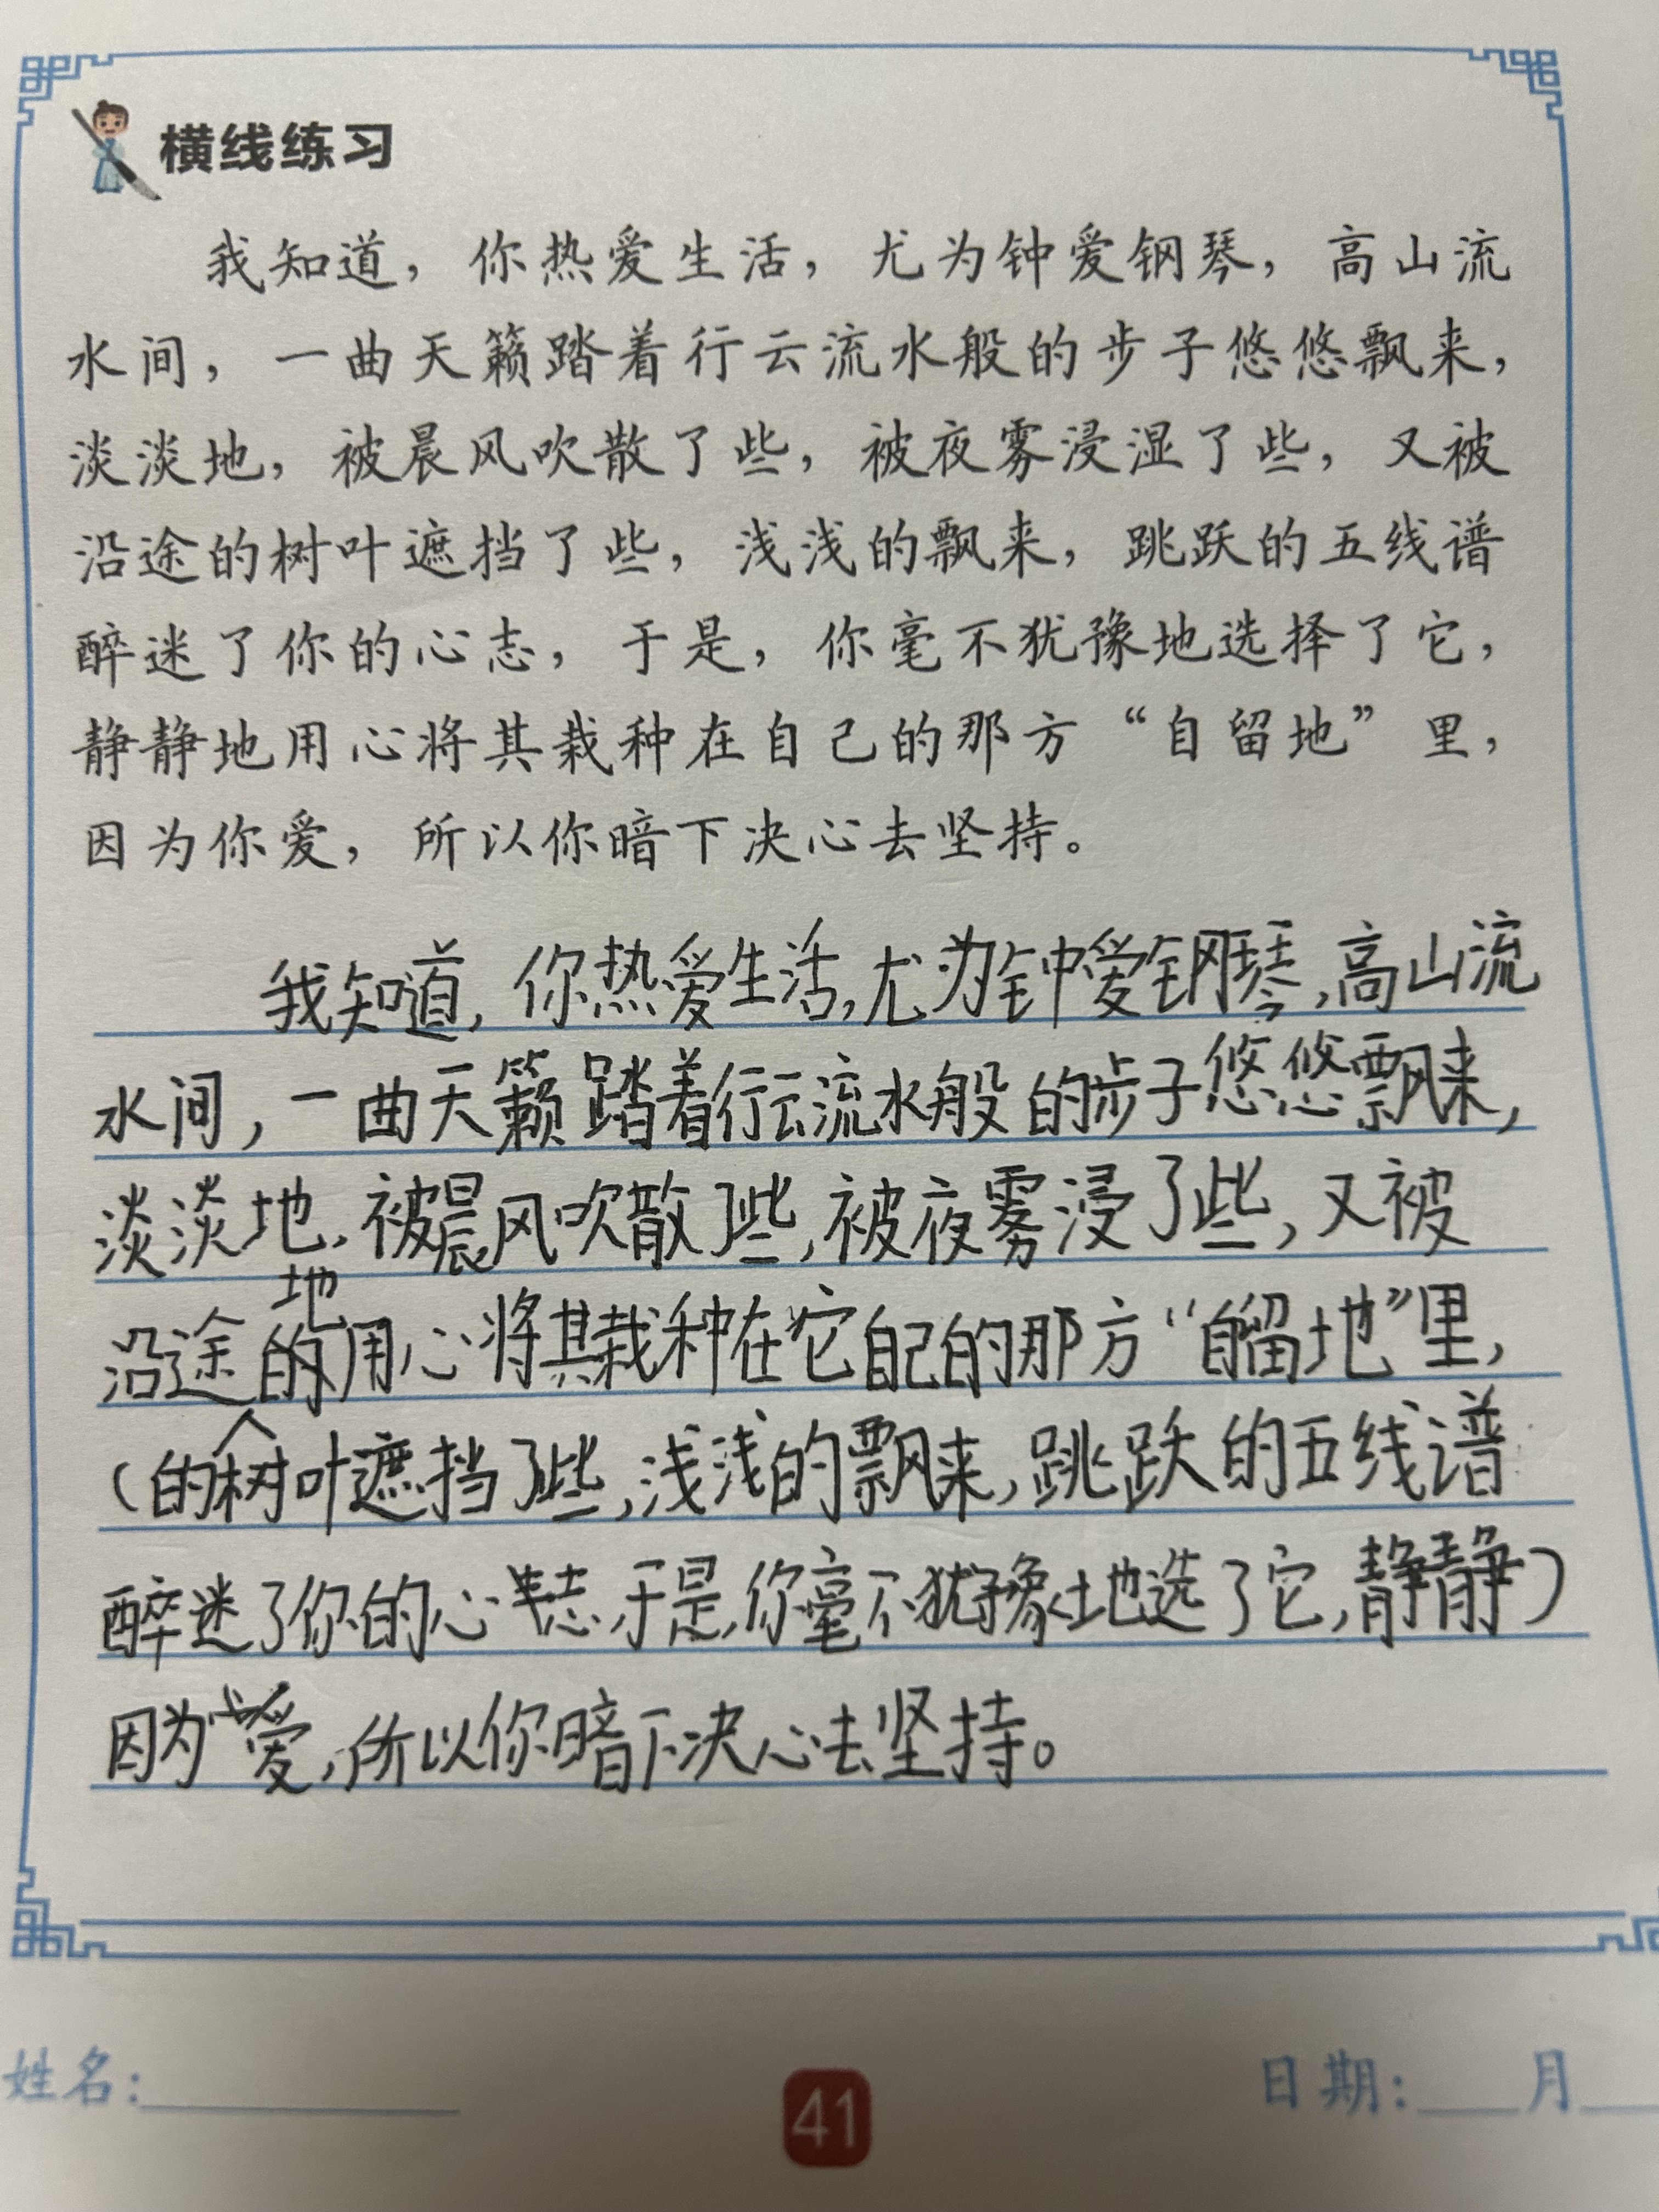 横线练习
我知道，你热爱生活，尤为钟爱钢琴，高山流
水间，一曲天籁踏着行云流水般的步子悠悠飘来，
淡淡地，被晨风吹散了些，被夜雾浸湿了些，又被
沿途的树叶遮挡了些，浅浅的飘来，跳跃的五线谱
醉迷了你的心志，于是，你毫不犹豫地选择了它，
静静地用心将其栽种在自己的那方“自留地”里，
因为你爱，所以你暗下决心去坚持。
我知道，你热爱生活，尤为钟爱钢琴，高山流
水间，一曲天籁踏着行云流水般的步子悠悠飘来，
淡淡地，被晨风吹散了些，被夜雾浸了些，又被
地
沿途的用心将其栽种在它自己的那方“自留地”里，
（的树叶遮挡了些，浅浅的飘来，跳跃的五线谱
醉迷了你的心志，于是，你毫不犹豫地选了它，静静）
因为爱，所以你暗下决心去坚持。
姓名：
41
日期： 月